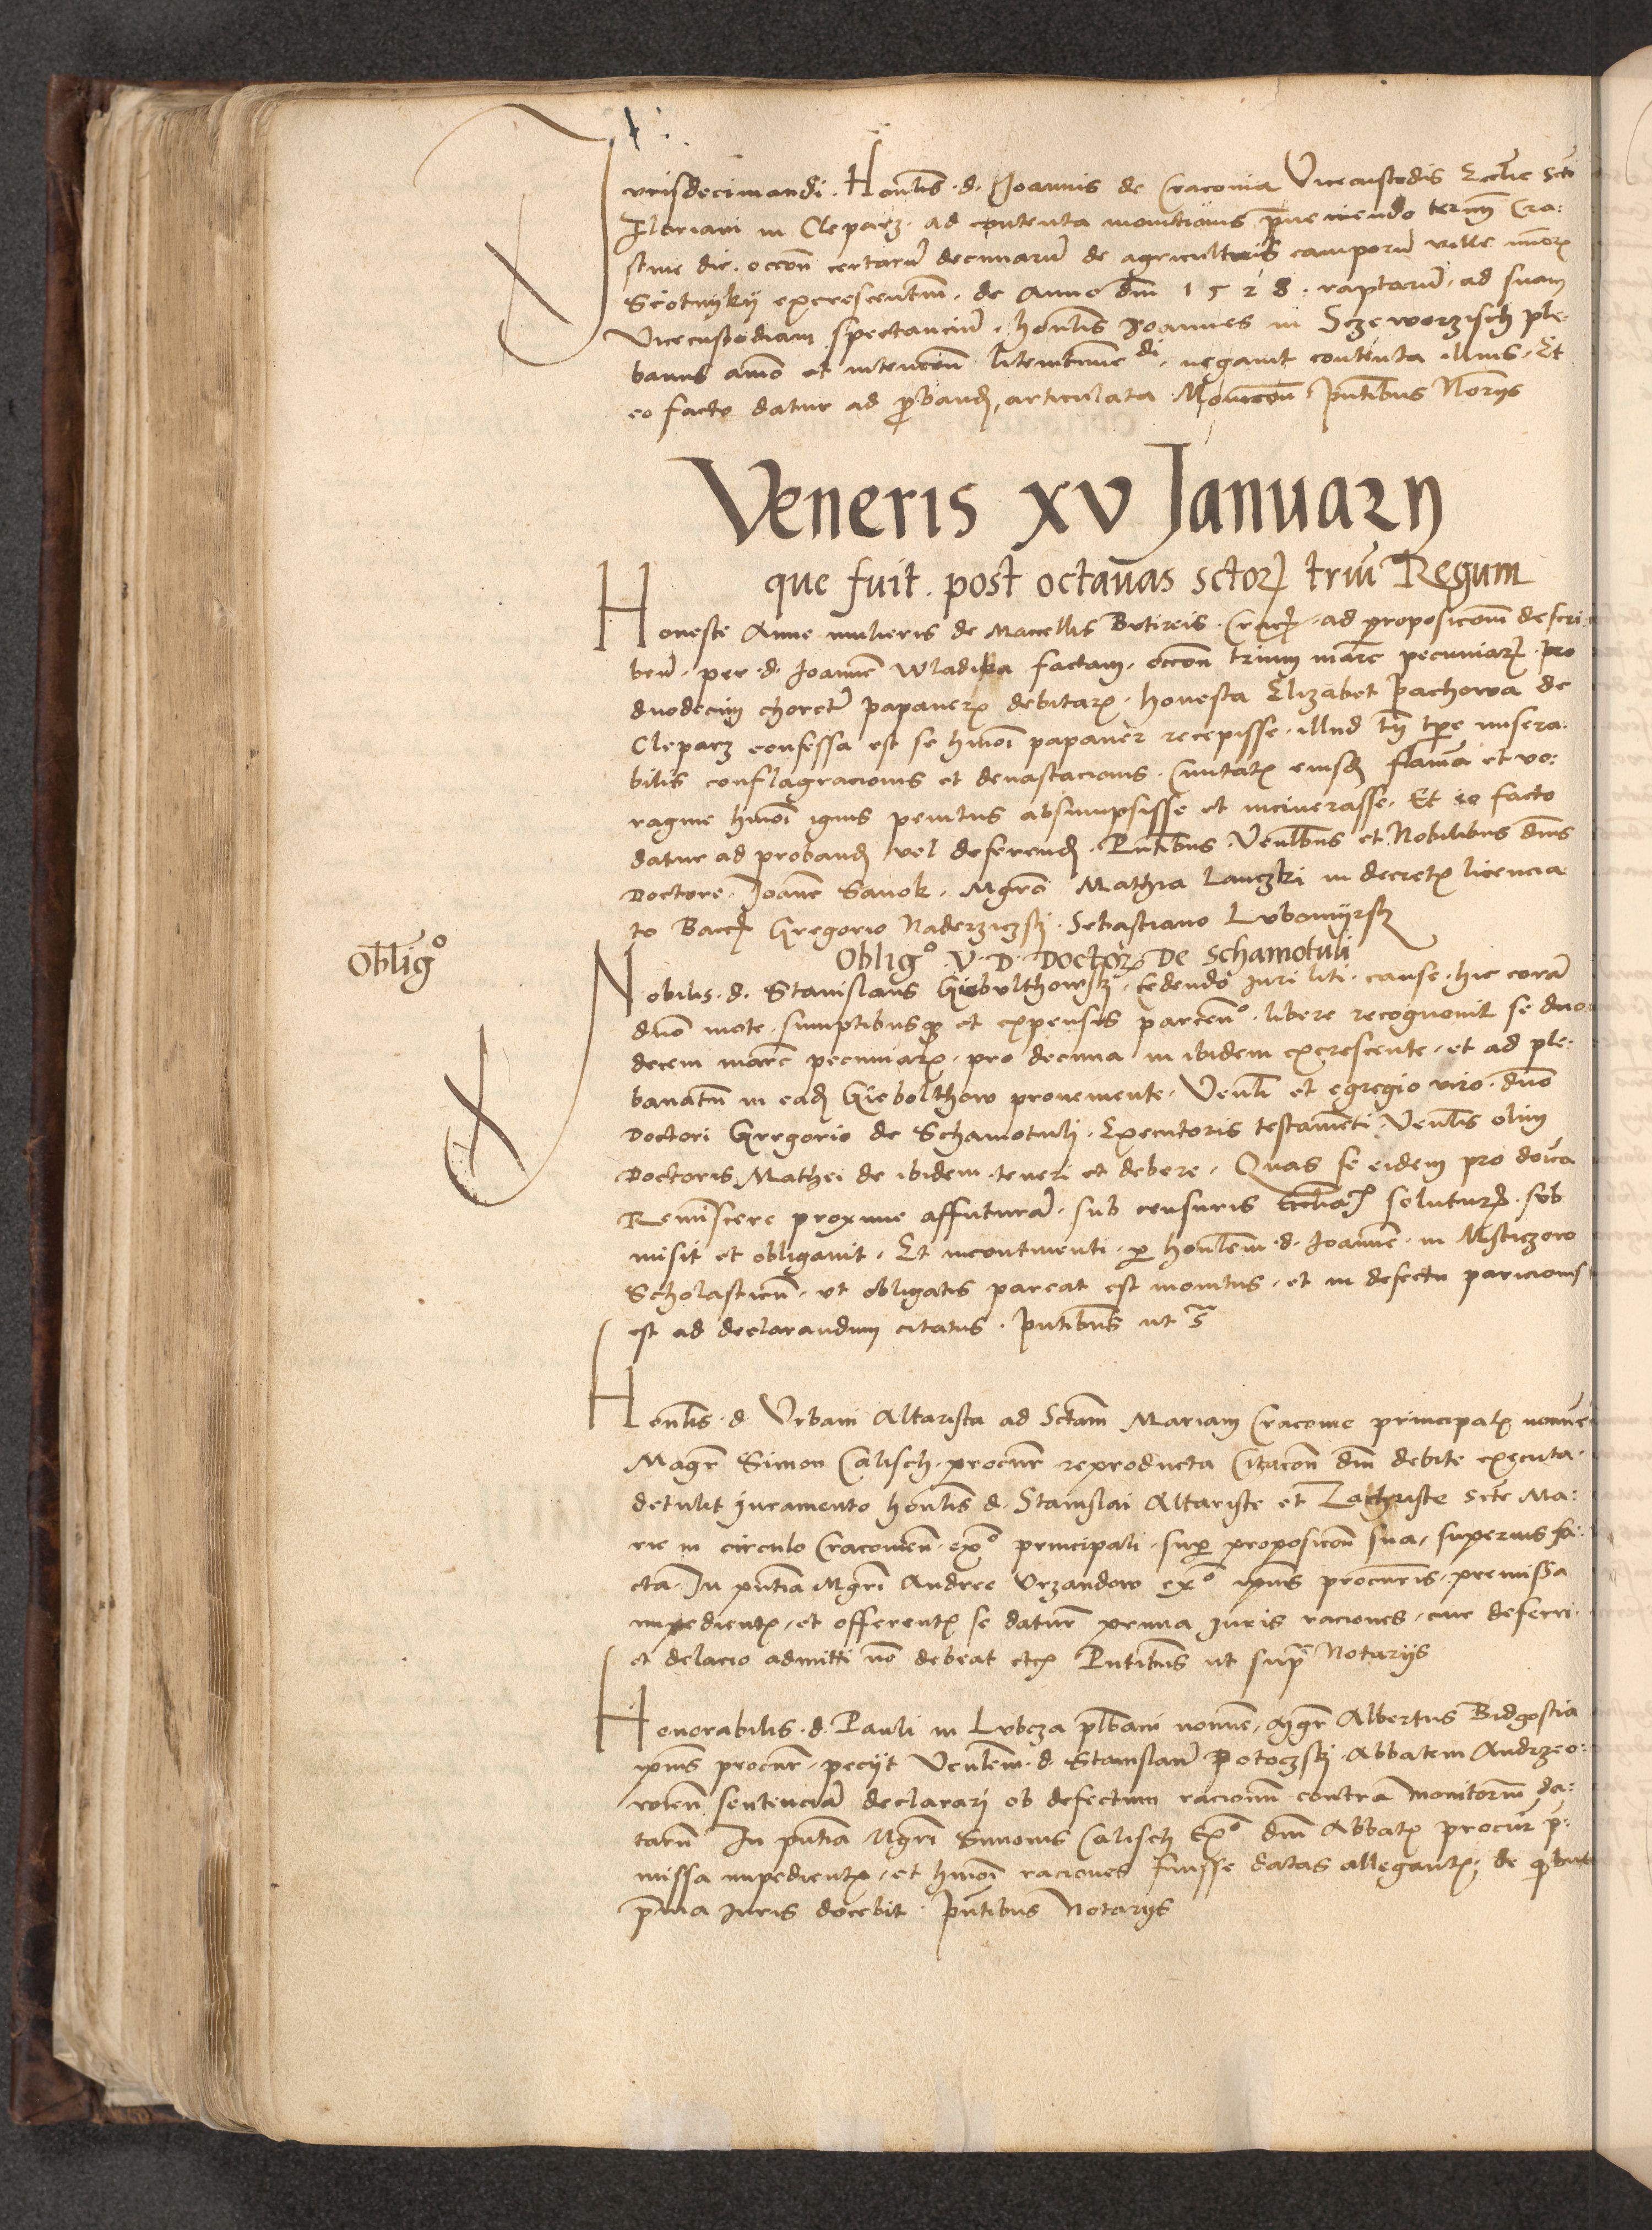 Jurisdecimandi. Honlis. d. Joannis de Cracovia Vicecustodis Ecclie scti
Floriani in Cleparz. ad contenta monitionis preveniendo termm Cra:
stine die. occon certaru decimaru de agriculturis camporu ville
excrescentium. de Anno dni 1528. raptaru. ad suam
Vicecustodiam spectanciu. honlis Joannes in ple:
banus animo et intencon negavit contenta illius. Et
eo facto datur ad proband, articulata Moniccon Pntibus Notrijs
Veneris XV Januarij
que fuit. post octavas sctor triu Regum
Honeste Anne mulieris de Macellis Butireis. ad proposicionem descri:
ben. per. d. Joanne Wladika factam. occon trium marc pecuniar. pro
duodecim choretis papaveris debitar. honesta Elizabet Pachowa de
Cleparz confessa est se hmoi papaver recepisse. illud tn tpre misera:
bilis conflagracionis et devastacionis. Civitatis eiusd flama et vo:
ragine hmoi ignis penitus absumpsisse et incinerasse. Et eo facto
datur ad proband vel deferend. Pntibus Venlibus et Nobilibus dnis
Doctore. Joane Sanok. Mgro Mathia Lanczki in decretis licencia
to Gregorio Naderziczski. Sebastiano Lubomijrski
Obligo
Obligo V. D. Doctoris De Schamotuli
Nobilis. d. Stanislaus Giebulthowski. cedendo iuri liti. cause. hic cora
dno mote. sumptibusque et expensis parcendo. libere recognovit se duo
decem marc pecuniar. pro decima in ibidem excrescente. et ad ple:
banatum in ead Giebolthow proveniente. Venli et egregio viro. dno
Doctori Gregorio de Schamotuli. Executoris testamenti Venlis olim
Doctoris Mathei de ibidem. teneri et debere. Quas se eidem pro doica
Reminiscere proxime affutura. sub censuris Eccliar soluturum. sub
misit et obligavit. Et incontinenti. per honlem. d. Joanne. in
Scholasticum. ut obligatis pareat est monitus. et in defectu paricionis
est ad declarandum citatus. Pntibus ut s
Honlis. d. Urbani Altarista ad Sctam Mariam Cracovie principalis nomine
Magr Simon Calisch. procur. reproducta Citacon dni debite executa.
detulit iuramento honlis d. Stanislai Altariste et Zachriste scte Ma:
rie in circulo Cracovien. exo principali. super proposicon sua, superius fa:
cta. In pntia Mgri Andree Urzandow exo ipius procuris. premissa
impedientis. et offerentis se datur prima Juris raciones. cur deferri.
et delacio admitti non debeat etc. Pntibus ut supra Notarijs
Honorabilis. d. Pauli in Lubcza plbani nomine, Mgr Albertus Bidgostia
ipius procur. pecijt Venlem. d. Stanislau Potoczski. Abbatem Andrzeo:
vien sentencia declarari ob defectum racionum contra monitorium da:
tarum In pntia Mgri Simonis Calisch Exo dni Abbatis procur pre:
missa impedientis. et hmoi raciones fuisse datas allegantis. de quibus
pma Juris docebit. Pntibus Notarijs